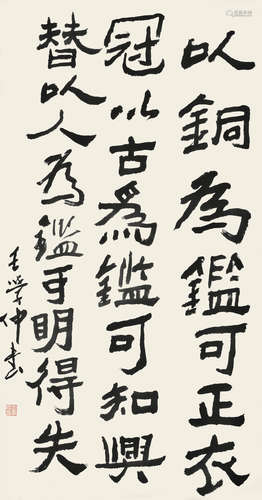 以銅為鑑可正衣
冠以古為鑑可知興
替以人為鑑可明得失
王學仲書